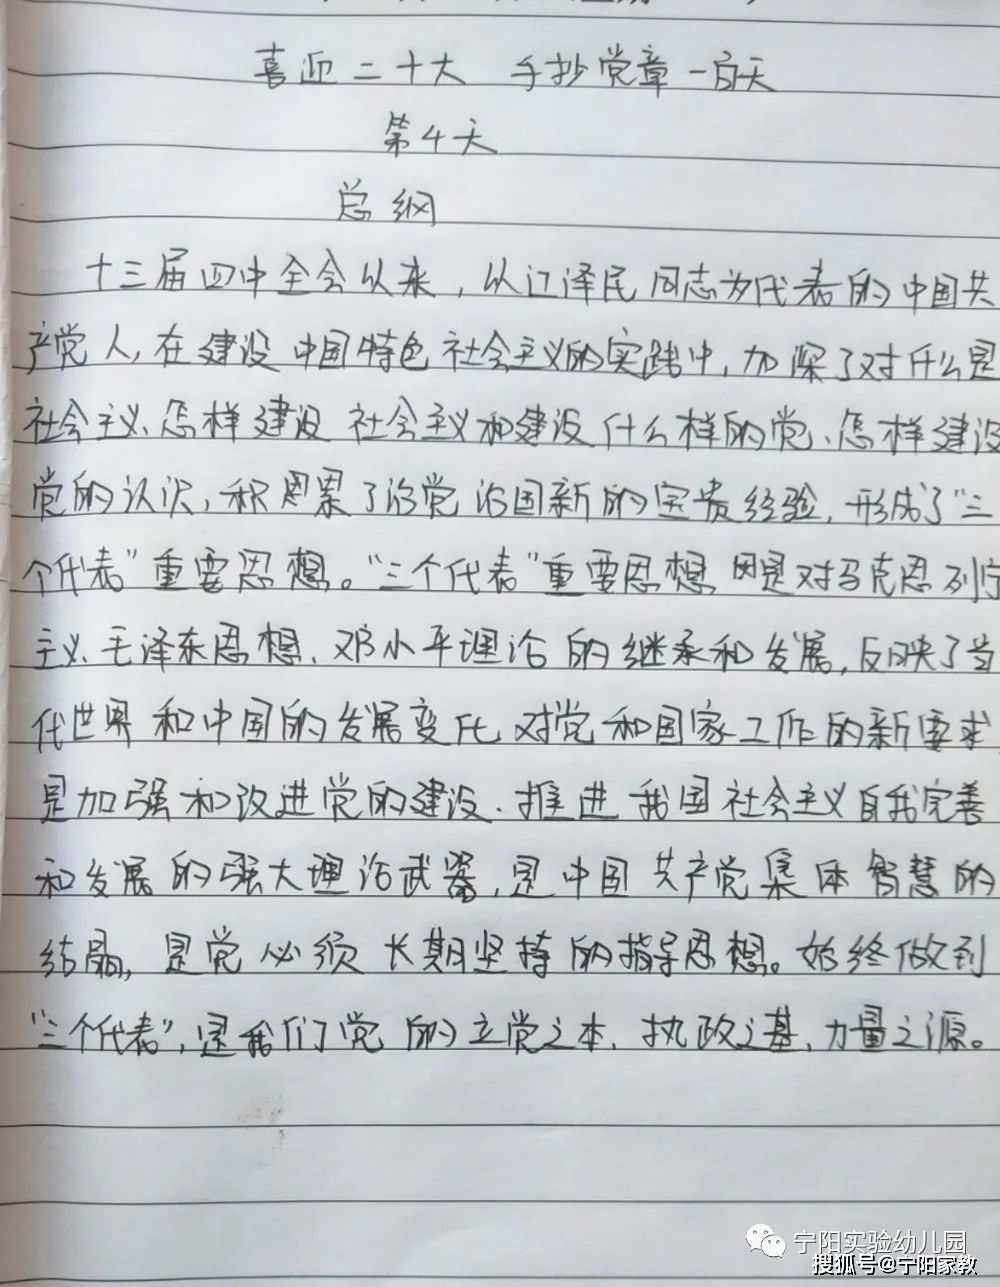 喜迎二十大 手抄党章一百天
第4天
总纲
十三届四中全会以来，以江泽民同志为代表的中国共
产党人，在建设中国特色社会主义的实践中，加深了对什么是
社会主义、怎样建设社会主义和建设什么样的党、怎样建设
党的认识，积累了治党治国新的宝贵经验，形成了“三
个代表”重要思想。“三个代表”重要思想是对马克思列宁
主义、毛泽东思想、邓小平理论的继承和发展，反映了当
代世界和中国的发展变化对党和国家工作的新要求
是加强和改进党的建设、推进我国社会主义自我完善
和发展的强大理论武器，是中国共产党集体智慧的
结晶，是党必须长期坚持的指导思想。始终做到
“三个代表”，是我们党的立党之本、执政之基、力量之源。
宁阳实验幼儿园
搜狐号@宁阳家教